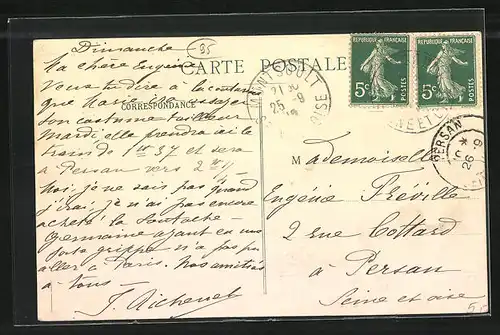 Dimanche
95
Ma chère Eugénie
CARTE POSTALE
Vous dire à la couturière
que
CORRESPONDANCE
son costume tailleur
Mardi elle prendra ici le
train de 1h 37 et sera à
Persan vers 2h ½
Moi, je ne sais pas quand
j'irai, je n'ai pas encore
acheté la
Germaine ayant eu une
forte grippe n'a pas pu
aller à Paris. Nos amitiés
à tous
REPUBLIQUE FRANÇAISE
5c POSTES
REPUBLIQUE FRANÇAISE
5c POSTES
MONTSOULT
25 -9
OISE
PERSAN
26 -9
Mademoiselle
Eugénie Fréville
2 rue Cottard
à Persan
Seine et oise